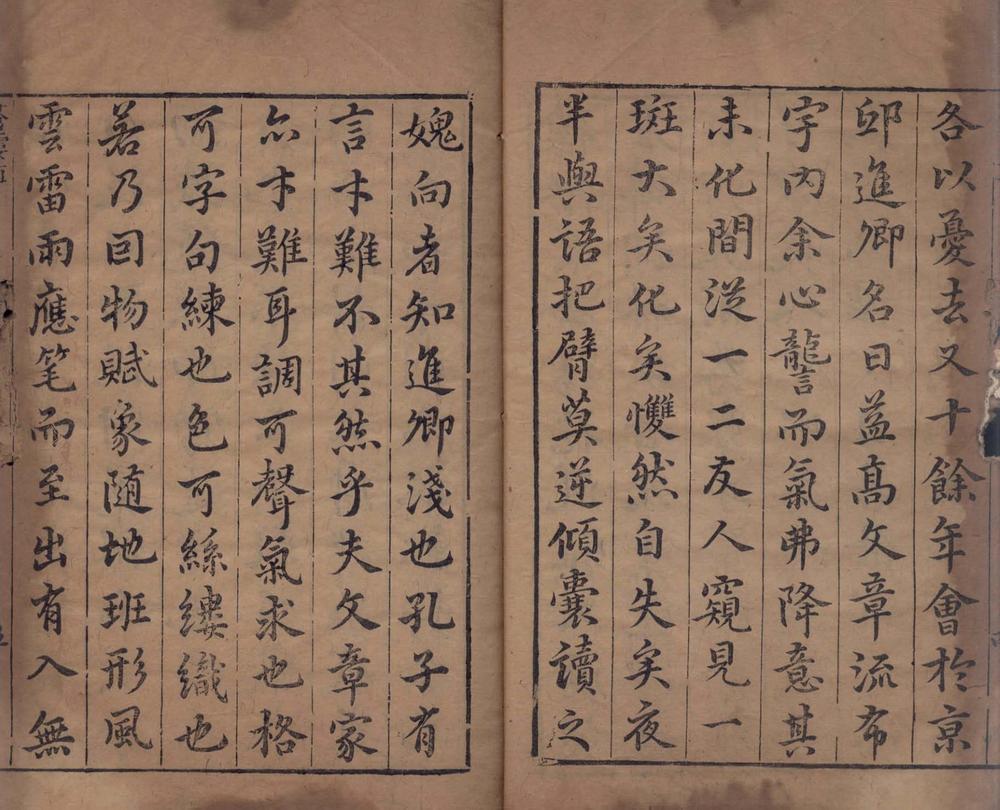 各以憂去又十餘年會於京
邸進卿名日益高文章流布
宇内余心讋而氣弗降意其
未化間從一二友人窺見一
斑大矣化矣戄然自失矣夜
半與語把臂莫逆傾囊讀之
媿向者知進卿淺也孔子有
言才難不其然乎夫文章家
亦才難耳調可聲氣求也格
可字句練也色可絲縷織也
若乃因物賦象随地班形風
雲雷雨應笔而至出有入無